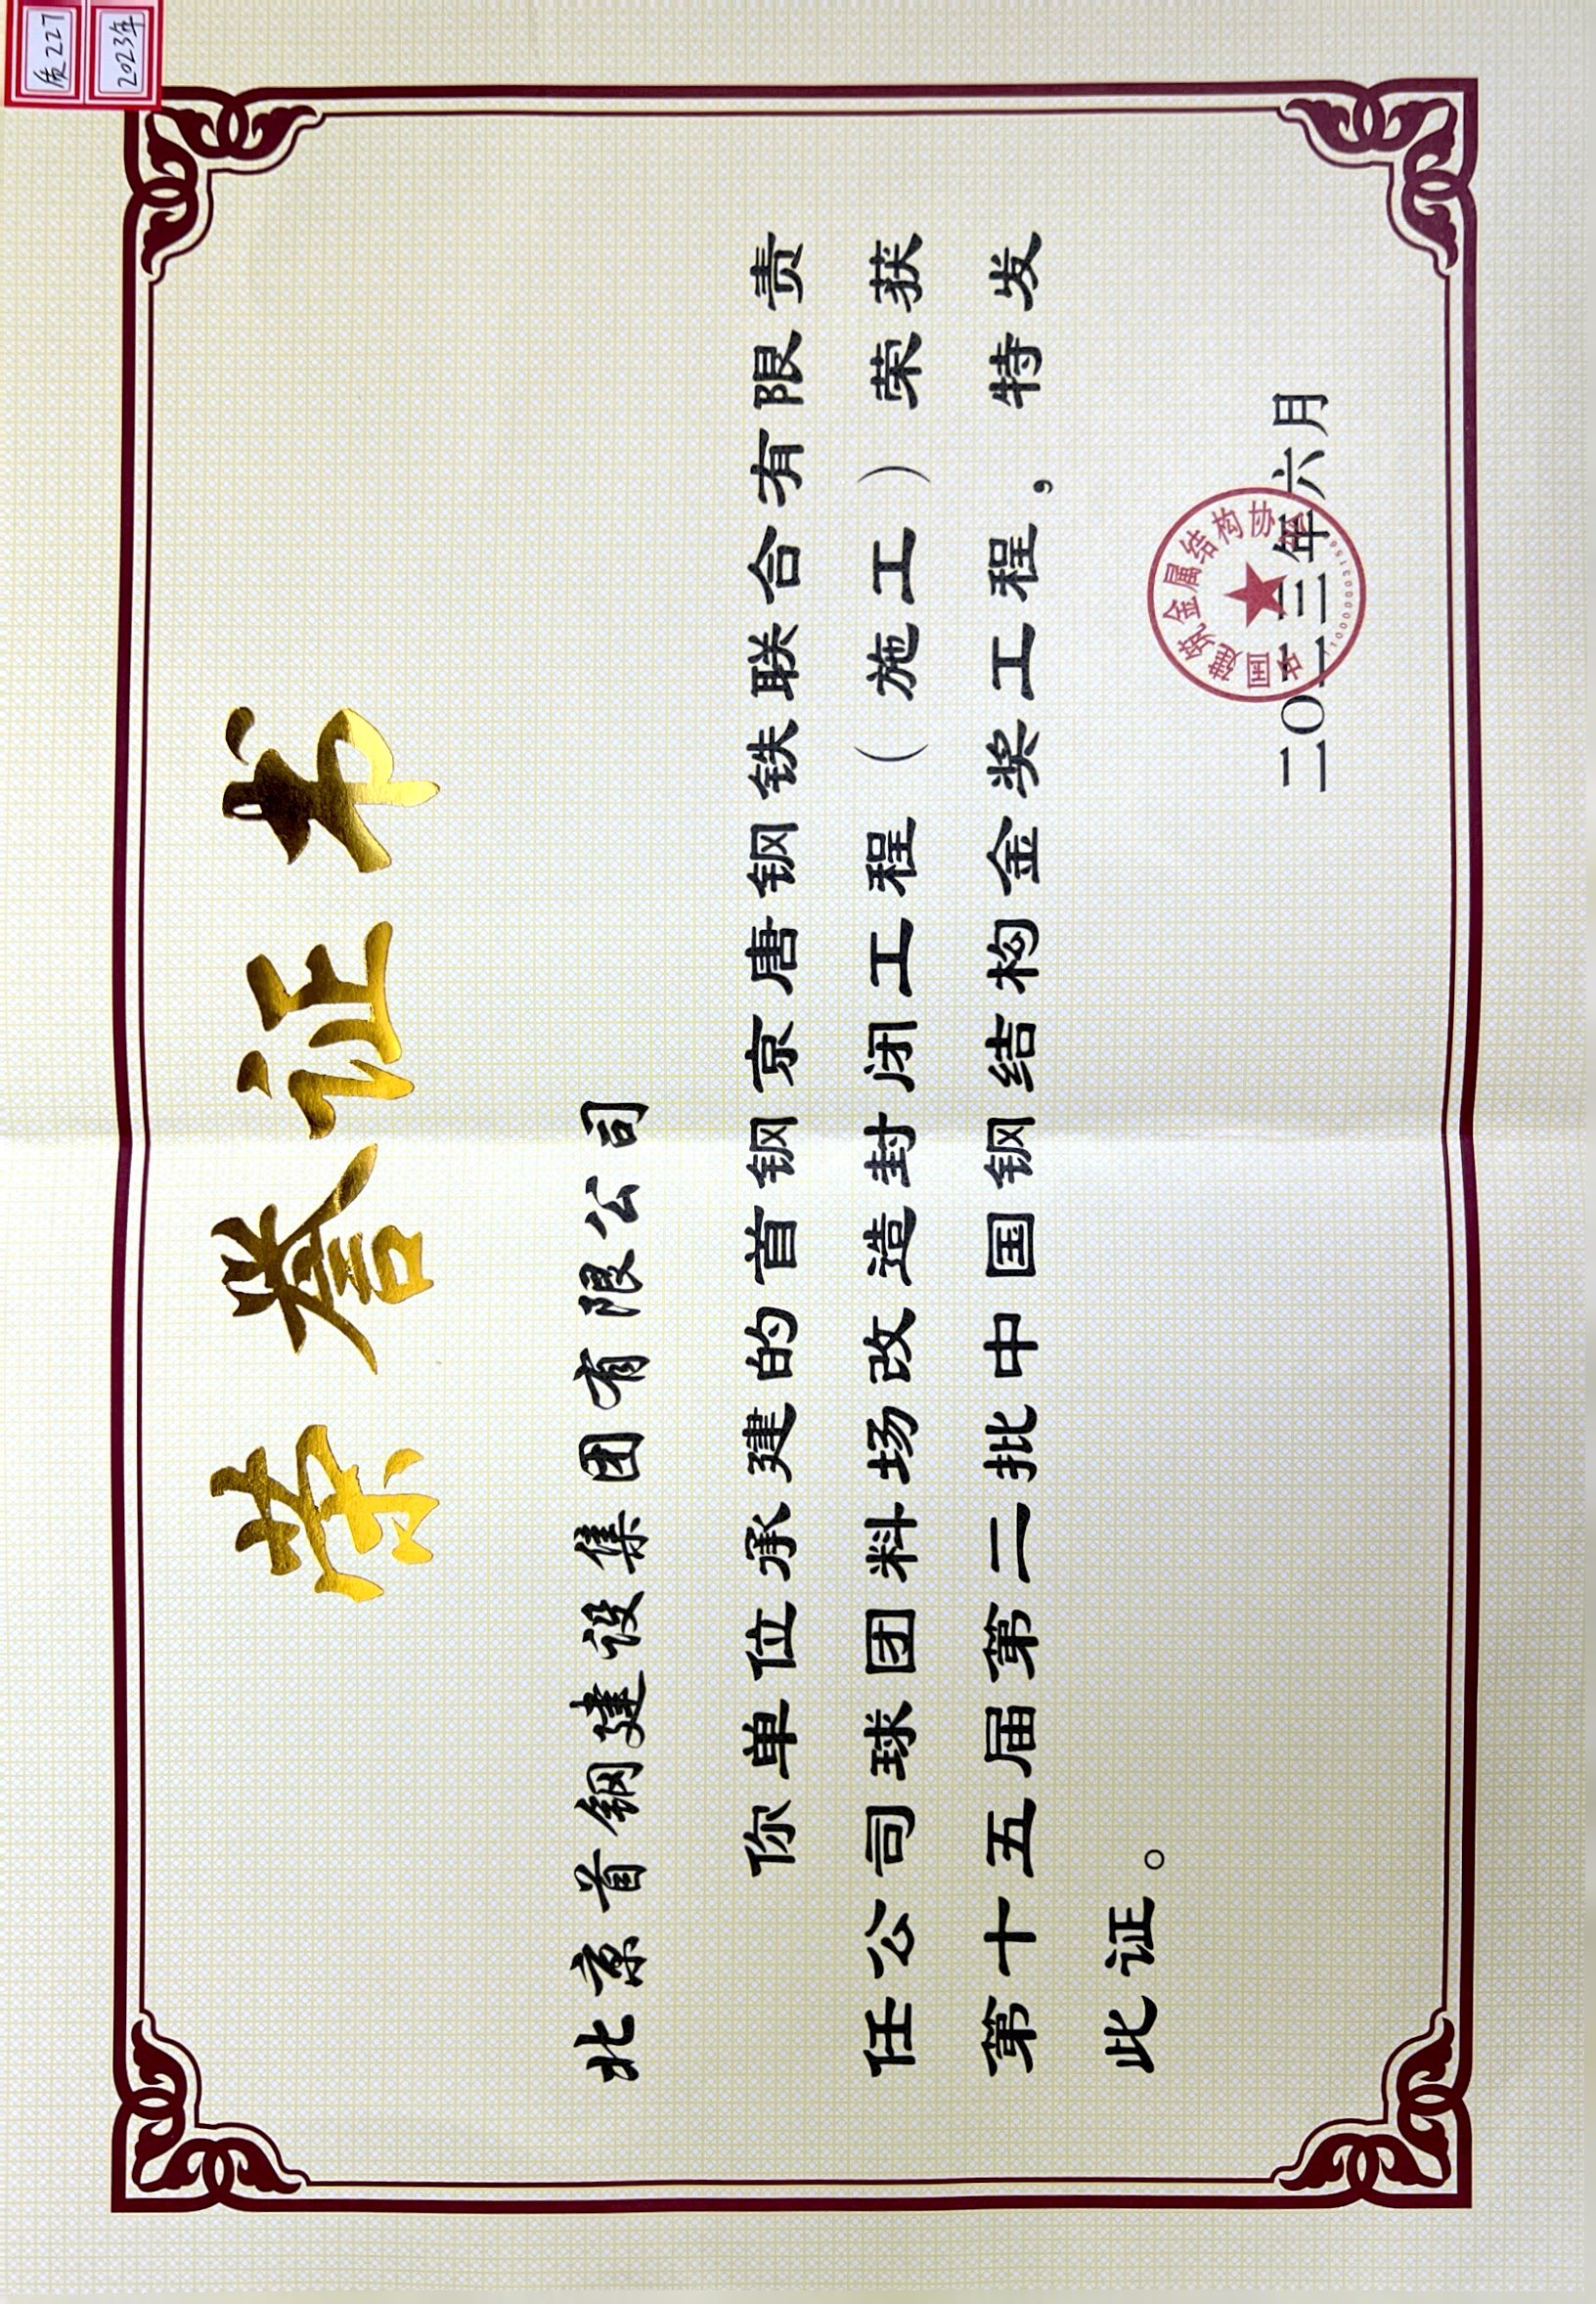 质227
2023年
荣誉证书
北京首钢建设集团有限公司
你单位承建的首钢京唐钢铁联合有限责
任公司球团料场改造封闭工程（施工）荣获
第十五届第二批中国钢结构金奖工程，特发
此证。
中国建筑金属结构协会
二〇二三年六月